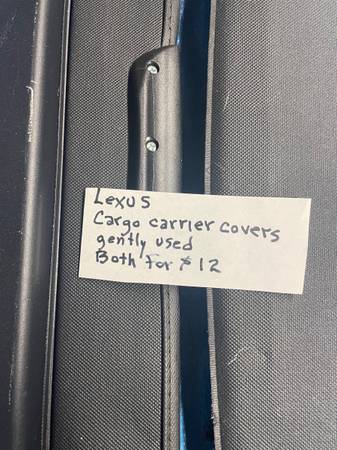 Lexus
Cargo carrier covers
gently used
Both For $12